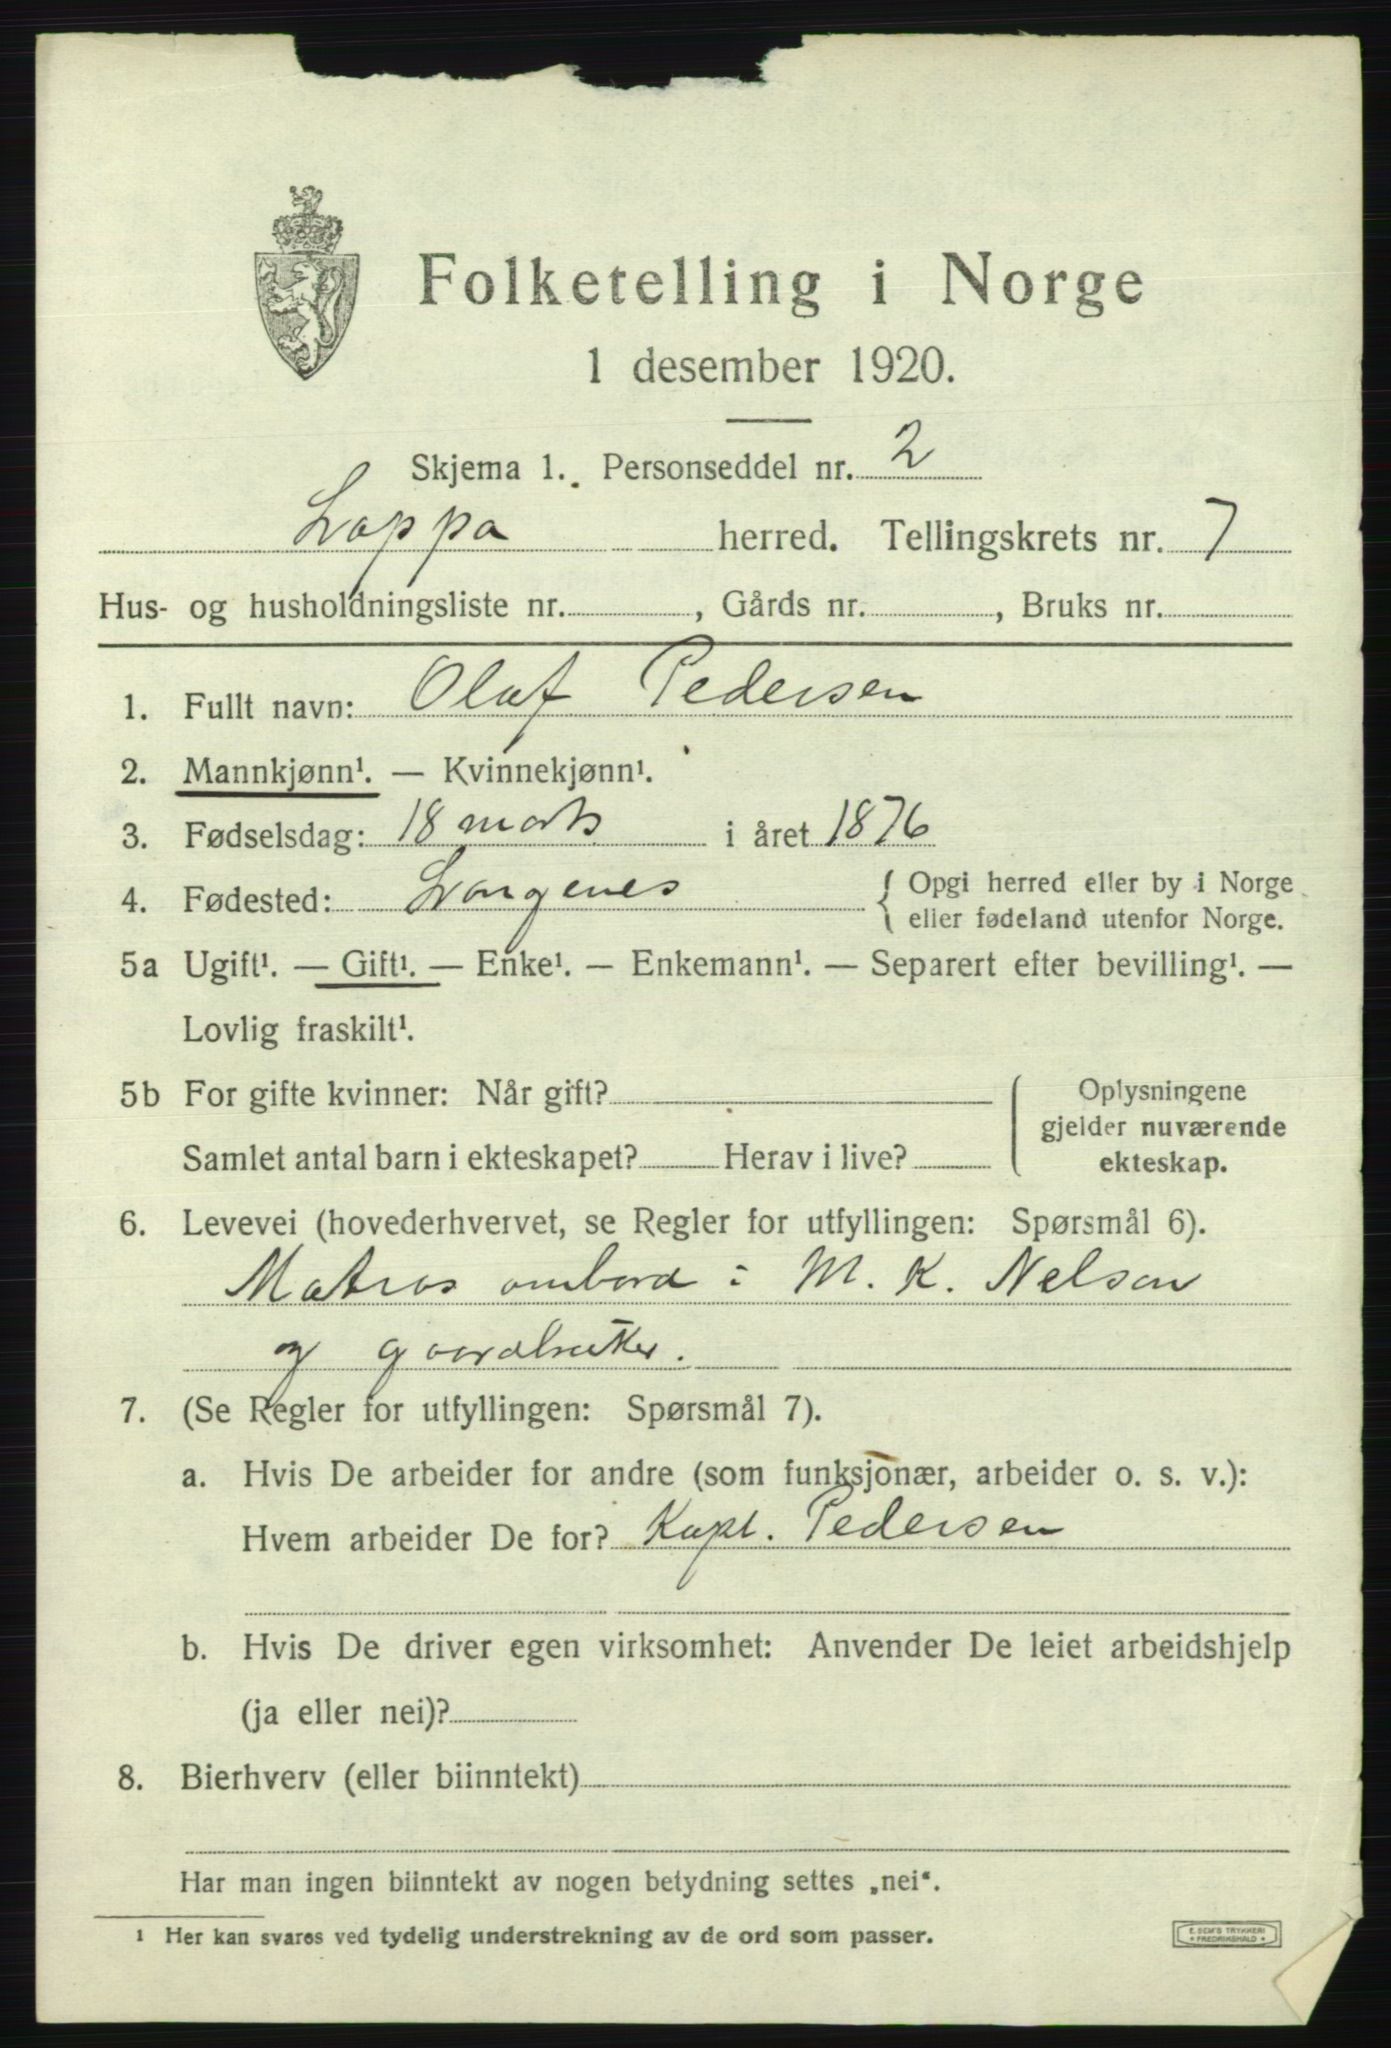 Folketelling i Norge
1 desember 1920.
Skjema 1. Personseddel nr. 2
Loppa herred. Tellingskrets nr. 7
Hus- og husholdningsliste nr. , Gårds nr. , Bruks nr.
1. Fullt navn: Olaf Pedersen
2. Mannkjønn¹. — Kvinnekjønn¹.
3. Fødselsdag: 18 marts i året 1876
4. Fødested: Langenes { Opgi herred eller by i Norge
eller fødeland utenfor Norge.
5a Ugift¹. — Gift¹. — Enke¹. — Enkemann¹. — Separert efter bevilling¹. —
Lovlig fraskilt¹.
5b For gifte kvinner: Når gift? Oplysningene
gjelder nuværende
Samlet antal barn i ekteskapet? Herav i live? ekteskap.
6. Levevei (hovederhvervet, se Regler for utfyllingen: Spørsmål 6).
Matros ombord i M. K. Nelson
og gaardbruker.
7. (Se Regler for utfyllingen: Spørsmål 7).
a. Hvis De arbeider for andre (som funksjonær, arbeider o. s. v.):
Hvem arbeider De for? Kapt. Pedersen
b. Hvis De driver egen virksomhet: Anvender De leiet arbeidshjelp
(ja eller nei)?
8. Bierhverv (eller biinntekt)
Har man ingen biinntekt av nogen betydning settes „nei“.
¹ Her kan svares ved tydelig understrekning av de ord som passer.
E. SEM'S TRYKKERI
• FREDRIKSHALD •